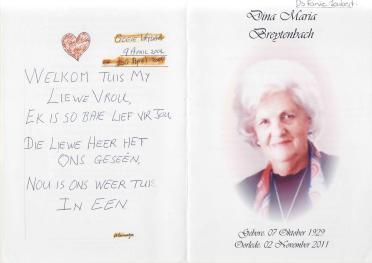 9 APRIL
WELKOM TUIS MY
LIEWE VROU,
EK IS SO BAIE LIEF VIR JOU
DIE LIEWE HEER HET
ONS GESEËN,
NOU IS ONS WEER TUIS
IN EEN
Dina Maria
Breytenbach
Gebore: 07 Oktober 1929
Oorlede: 02 November 2011